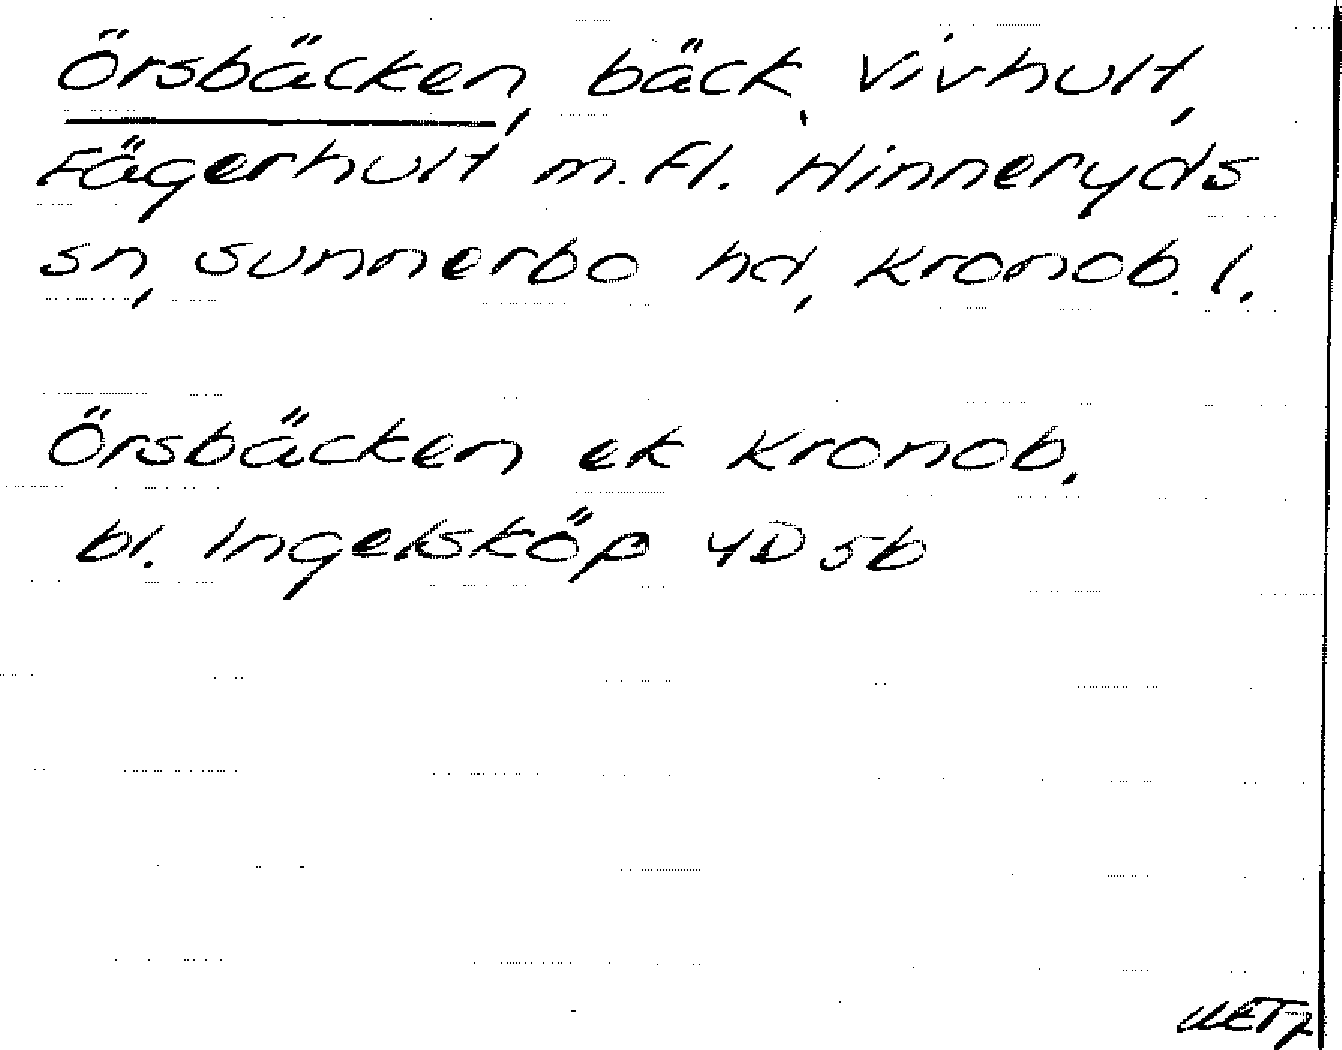 Örsbäcken, bäck, Vivhult,
Fägerhult m.fl. Hinneryds
sn, Sunnerbo hd, Kronob. l.
Örsbäcken ek Kronob.
bl. Ingelsköp 4D 5b